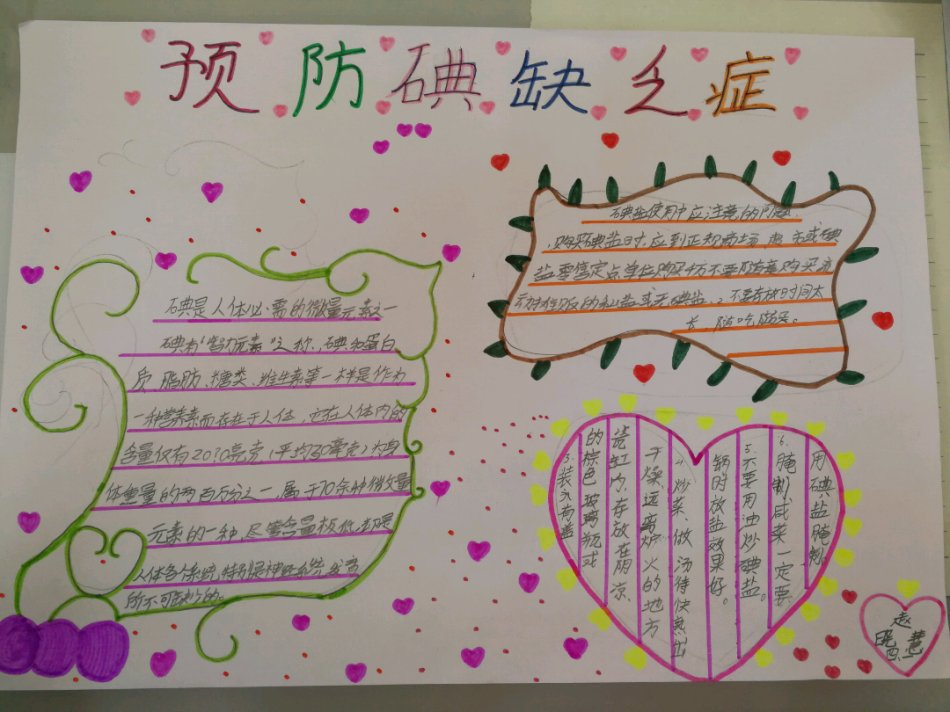 预防碘缺乏症
碘盐使用中应注意的问题
1.购买碘盐时,应到正规商场、超市或碘
盐零售定点单位购买,千万不要随意购买流
动摊贩的私盐或无碘盐。2.不要存放时间太
长,随吃随买。
碘是人体必需的微量元素之一
碘有“智力元素”之称,碘和蛋白
质、脂肪、糖类、维生素等一样是作为
一种营养素而存在于人体,它在人体内的
含量仅有20~50毫克(平均30毫克),为身
体重量的两百万分之一,属于70余种微量
元素的一种,尽管含量极低,却是
人体各个系统,特别是神经系统发育
所不可缺少的。
3.装入有盖
的棕色玻璃瓶或
瓷缸内,存放在阴凉、
干燥、远离炉火的地方
4.炒菜、做汤待快熟出
锅时放盐效果好。
5.不要用油炒碘盐。
6.腌制咸菜一定要
用碘盐腌制
赵
慧